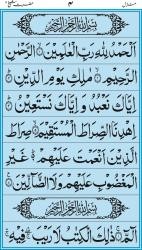 بِسْمِ اللّٰهِ الرَّحْمٰنِ الرَّحِيْمِ
اَلْحَمْدُ لِلّٰهِ رَبِّ الْعٰلَمِيْنَ ۙ الرَّحْمٰنِ
الرَّحِيْمِ ۙ مٰلِكِ يَوْمِ الدِّيْنِ ؕ
اِيَّاكَ نَعْبُدُ وَاِيَّاكَ نَسْتَعِيْنُ ؕ
اِهْدِنَا الصِّرَاطَ الْمُسْتَقِيْمَ ۙ صِرَاطَ
الَّذِيْنَ اَنْعَمْتَ عَلَيْهِمْ ۙ غَيْرِ
الْمَغْضُوْبِ عَلَيْهِمْ وَلَا الضَّآلِّيْنَ
بِسْمِ اللّٰهِ الرَّحْمٰنِ الرَّحِيْمِ
الٓمّٓ ۚ ذٰلِكَ الْكِتٰبُ لَا رَيْبَ ۛ فِيْهِ